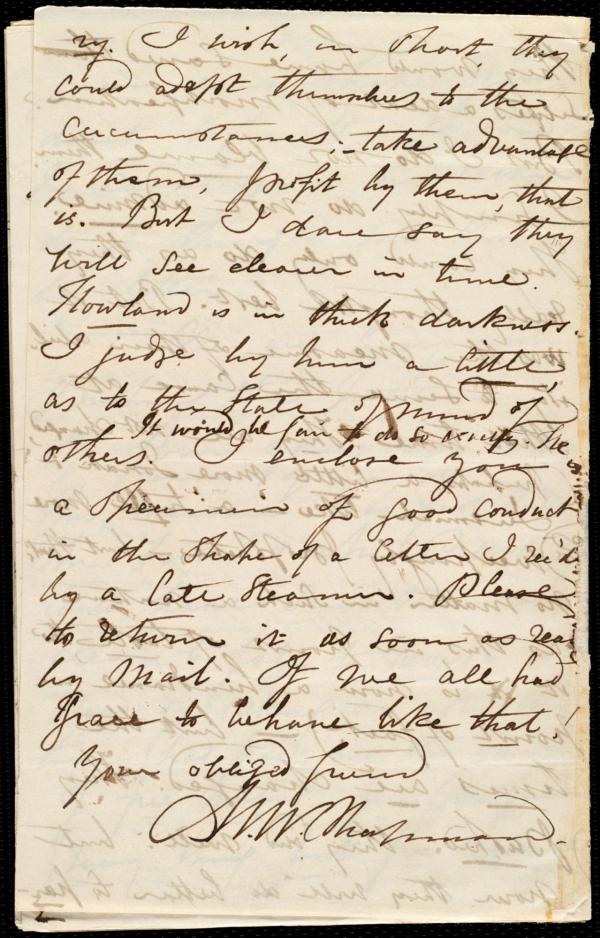 ry. I wish, in short, they
could adapt themselves to the
circumstances; - take advantage
of them, profit by them, that
is. But I dare say they
will see clearer in time.
Howland is in thick darkness.
I judge by him a little,
as to the state of mind of
It would be fair to do so exactly.
others. I enclose you
a specimen of good conduct
in the shape of a letter I rec'd
by a late Steamer. Please
to return it as soon as read
by Mail. If we all had
grace to behave like that!
Your obliged friend
M. W. Chapman.